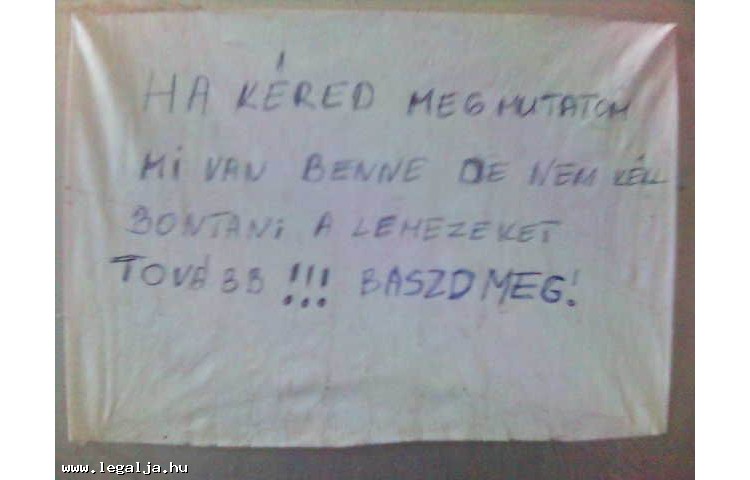 HA KÉRED MEGMUTATOM
MI VAN BENNE DE NEM KÉLL
BONTANI A LEMEZEKET
TOVÁBB !!! BASZDMEG!
www.legalja.hu